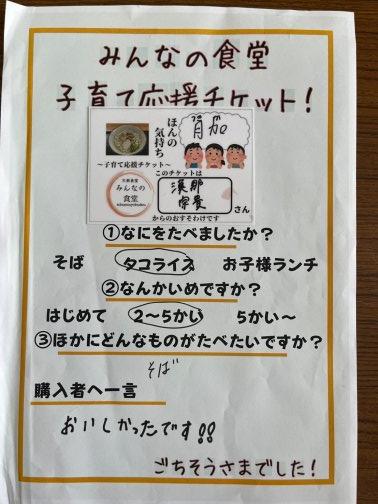 みんなの食堂
子育て応援チケット!
ほんの
気持ち
~子育て応援チケット~
このチケットは
みんなの
食堂
さん
からのおすそわけです
①なにをたべましたか?
そば タコライス お子様ランチ
②なんかいめですか?
はじめて 2~5かい 5かい~
③ほかにどんなものがたべたいですか?
そば
購入者へ一言
おいしかったです!!
ごちそうさまでした!